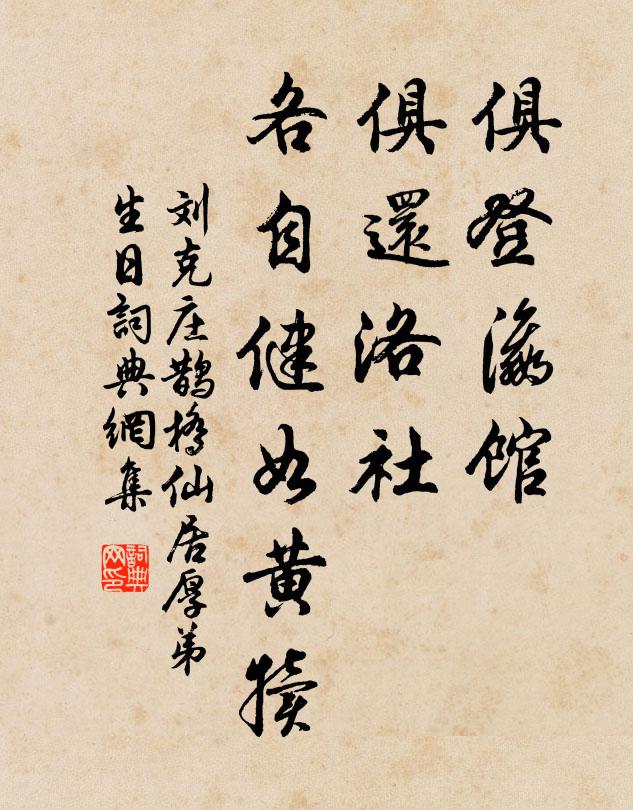 俱登瀛馆
俱還洛社
各自健如黄犊
刘克庄鹊桥仙居厚弟
生日詞典網集
詞典
网印